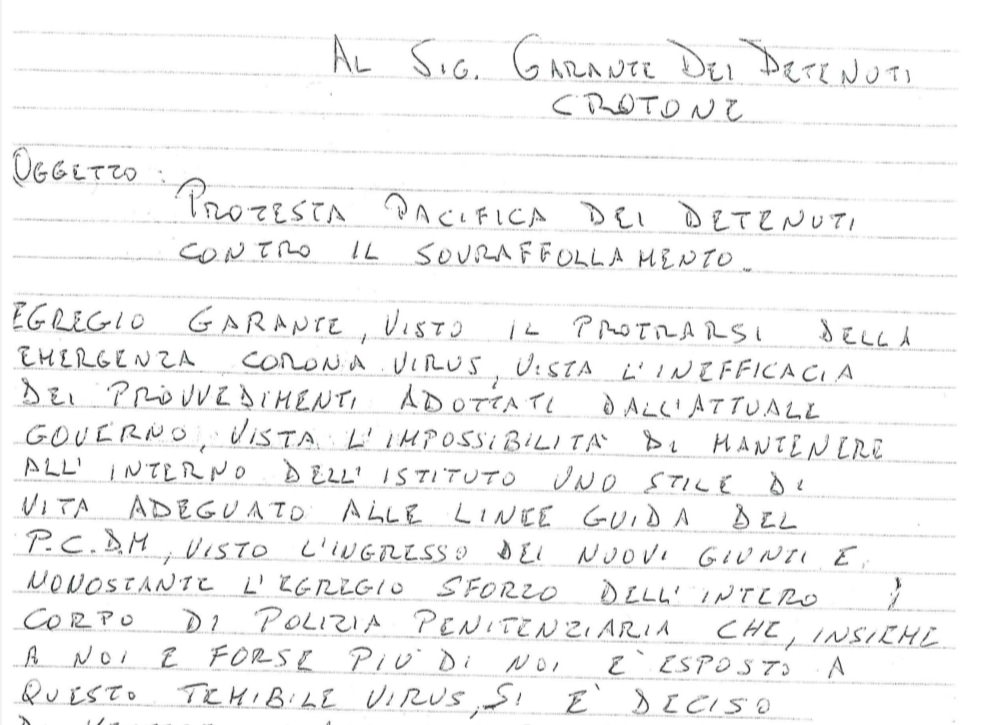 AL SIG. GARANTE DEI DETENUTI
CROTONE
OGGETTO:
PROTESTA PACIFICA DEI DETENUTI
CONTRO IL SOVRAFFOLLAMENTO.
EGREGIO GARANTE, VISTO IL PROTRARSI DELLA
EMERGENZA CORONA VIRUS, VISTA L'INEFFICACIA
DEI PROVVEDIMENTI ADOTTATI DALL'ATTUALE
GOVERNO, VISTA L'IMPOSSIBILITÀ DI MANTENERE
ALL'INTERNO DELL'ISTITUTO UNO STILE DI
VITA ADEGUATO ALLE LINEE GUIDA DEL
P.C.D.M, VISTO L'INGRESSO DEI NUOVI GIUNTI E
NONOSTANTE L'EGREGIO SFORZO DELL'INTERO
CORPO DI POLIZIA PENITENZIARIA CHE, INSIEME
A NOI E FORSE PIÙ DI NOI È ESPOSTO A
QUESTO TEMIBILE VIRUS, SI È DECISO